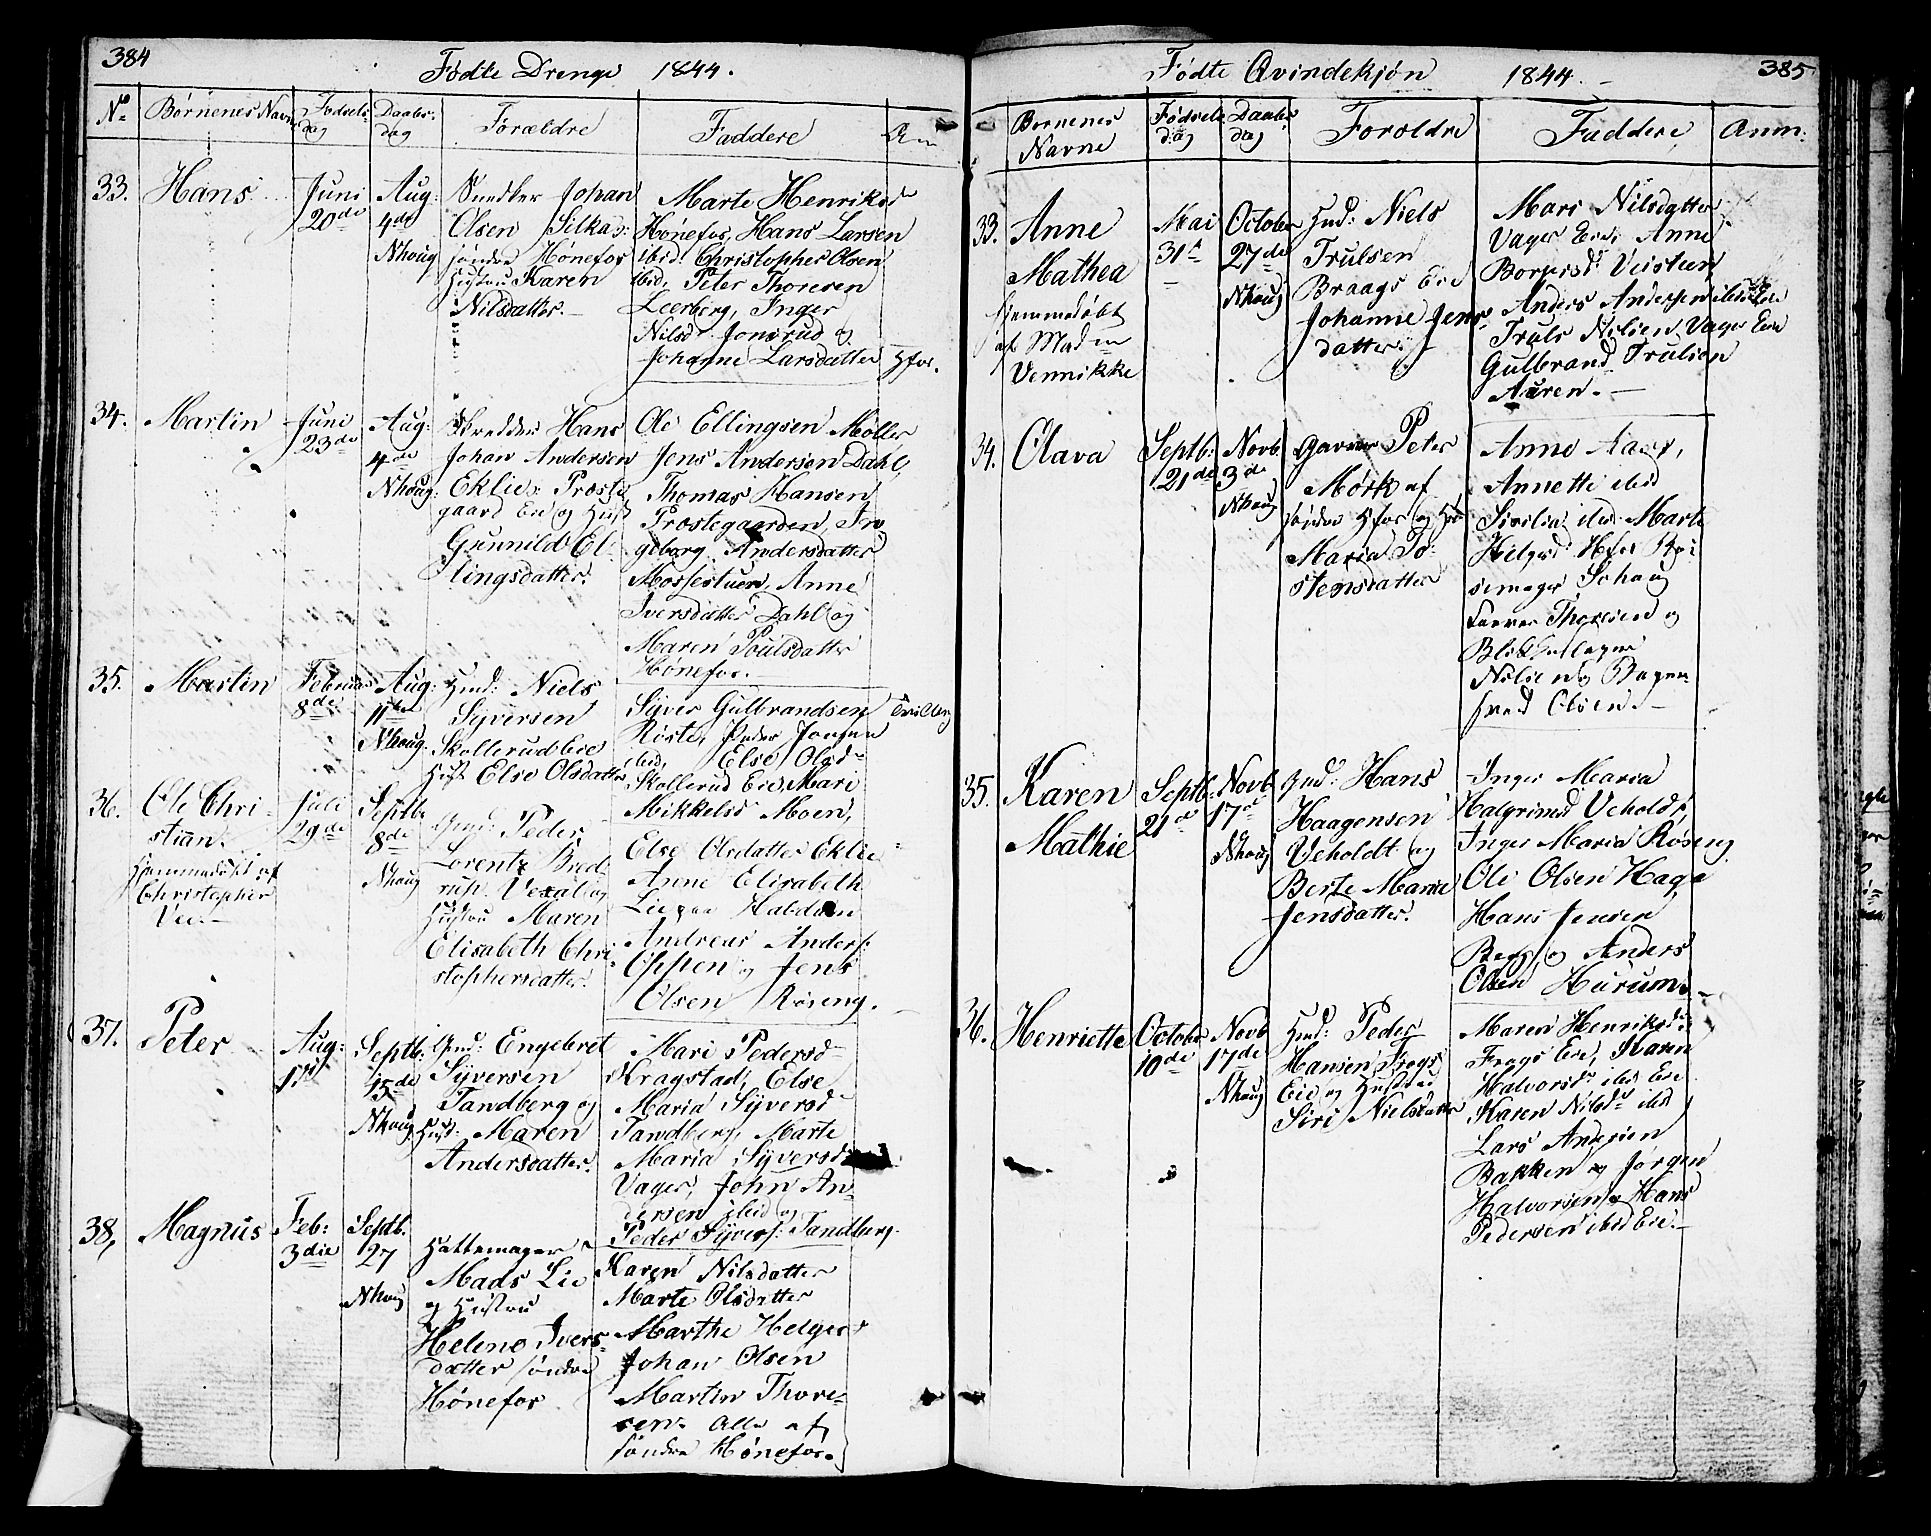 384
Fødte Drenge 1844.
No Børnenes Navne Fødsels dag Daabs dag Forældre Faddere
33. Hans
Juni
20de
Aug:
4de
Nhoug
Snedker Johan
Olsen Silka
søndre Hønefos
Hustru Karen
Nilsdatter.
Marte Henriksd
Hønefos, Hans Larsen
ibid: Christopher Olsen
ibid, Peter Thoresen
Leerberg, Inger
Nilsd Jonsrud og
Johanne Larsdatter Hfos.
34. Martin
Juni
23de
Aug:
4de
Nhoug:
Skredder Hans
Johan Andersen
Eklie Præste
gaard Eie og Hust
Gunnild El-
lingsdatter.
Ole Ellingsen Møller
Jens Andersen Dahl,
Thomas Hansen
Præstegaarden, In
geborg Andersdatter
Mossestuen, Anne
Iversdatter Dahl og
Maren Poulsdatter
Hønefos.
35. Martin
Februar
8de
Aug:
11te
Nhoug.
Hmd: Niels
Syversen
Skollerud Eie
Hust Else Olsdatter
Syver Gulbrandsen
Røste, Peder Jonsen
ibid, Else Olsd
Skollerud Eie, Mari
Mikkelsd Moen,
Tvilling
36. Ole Chri-
stian.
Hjemmedøbt af
Christopher
Vee.
Juli
29de
Septb
8de
Nhoug
Gmd: Peder
Lorentz Bred
rup. Vexal og
Hustru Maren
Elisabeth Chri-
stophersdatter.
Else Olsdatter Eklie
Anne Elisabeth
Lie Halvdan
Andreas Anders:
Oppen og Jens
Olsen Røseng.
37. Peter
Aug:
17
Septb:
15de
Nhoug
Gmd: Engebret
Syversen
Tandberg og
Hust: Maren
Andersdatter.
Mari Pedersd
Kragstad, Else
Maria Syversd
Tandberg, Marte
Maria Syversd
Vager, John An-
dersen ibid og
Peder Syvers: Tandberg.
38, Magnus
Feb:
3die
Septb.
27
Nhoug
Hattemager
Mads Lie
og Hustru
Helene Ivers-
datter søndre
Hønefos
Karen Nilsdatter
Marte Olsdatter
Marthe Helgesd
Johan Olsen
Martin Thore-
sen. Alle af
søndre Hønefos.
385
Fødte Qvindekjøn 1844.
Børnenes Navne Fødsels dag Daabs dag Forældre Faddere Anm:
33. Anne
Mathea
hjemmedøbt
af Madm
Vennikke
Mai
31te
October
27de
Nhoug
Hmd: Niels
Trulsen
Braags Eie
Johanne Jens
datter.
Mari Nilsdatter
Vager Eie, Anne
Borgersd Veisteen
Anders Andersen ibid Eie
Truls Nilsen Vager Eie
Gulbrand Trulsen
Auren.
34. Olava
Septb:
21de
Novb
3de
Nhoug
Garver Peter
Mørk af
søndre Hfos og Hu
Maria To-
stensdatter
Anne Aaer,
Annette ibid
Sicilia ibid Marte
Helgesd Hfos
semager Schoug
Farver Thoresen og
Blikkenslager
Nilsen og Bager
svend Olsen.
35. Karen
Mathie
Septb:
21de
Novb
17de
Nhoug
Gmd: Hans
Haagensen
Veholdt og
Berte Marie
Jensdatter.
Inger Maria
Halgrimsd Veholdt,
Inger Maria Røseng
Ole Olsen Haga
Hans Jensen
Berg og Anders
Olsen Hurum.
36. Henriette
October
10de
Novb
17de
Nhoug
Hmd: Peder
Hansen Frogs
Eie og Hustrue
Siri Nielsdatter
Maren Henriksd:
Frogs Eie, Karen
Halvorsd ibid Eie
Karen Nilsd ibid
Lars Andersen
Bakken og Jørgen
Halvorsen og Hans
Pedersen ibid Eie.